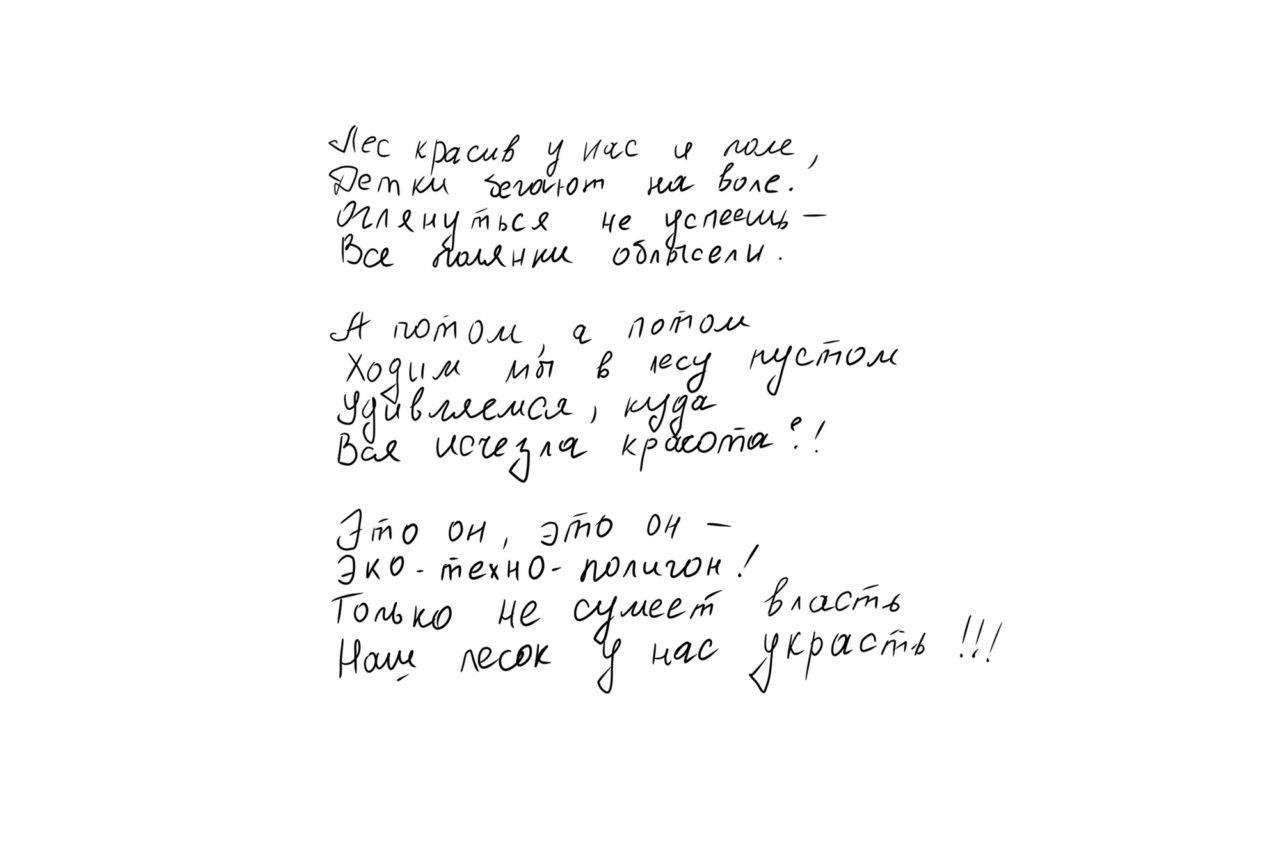 Лес красив у нас и поле,
Детки бегают на воле.
Оглянуться не успеешь –
Все полянки облысели.
А потом, а потом
Ходим мы в лесу пустом
Удивляемся, куда
Вся исчезла красота?!
Это он, это он –
Эко-техно-полигон!
Только не сумеет власть
Наш лесок у нас украсть!!!